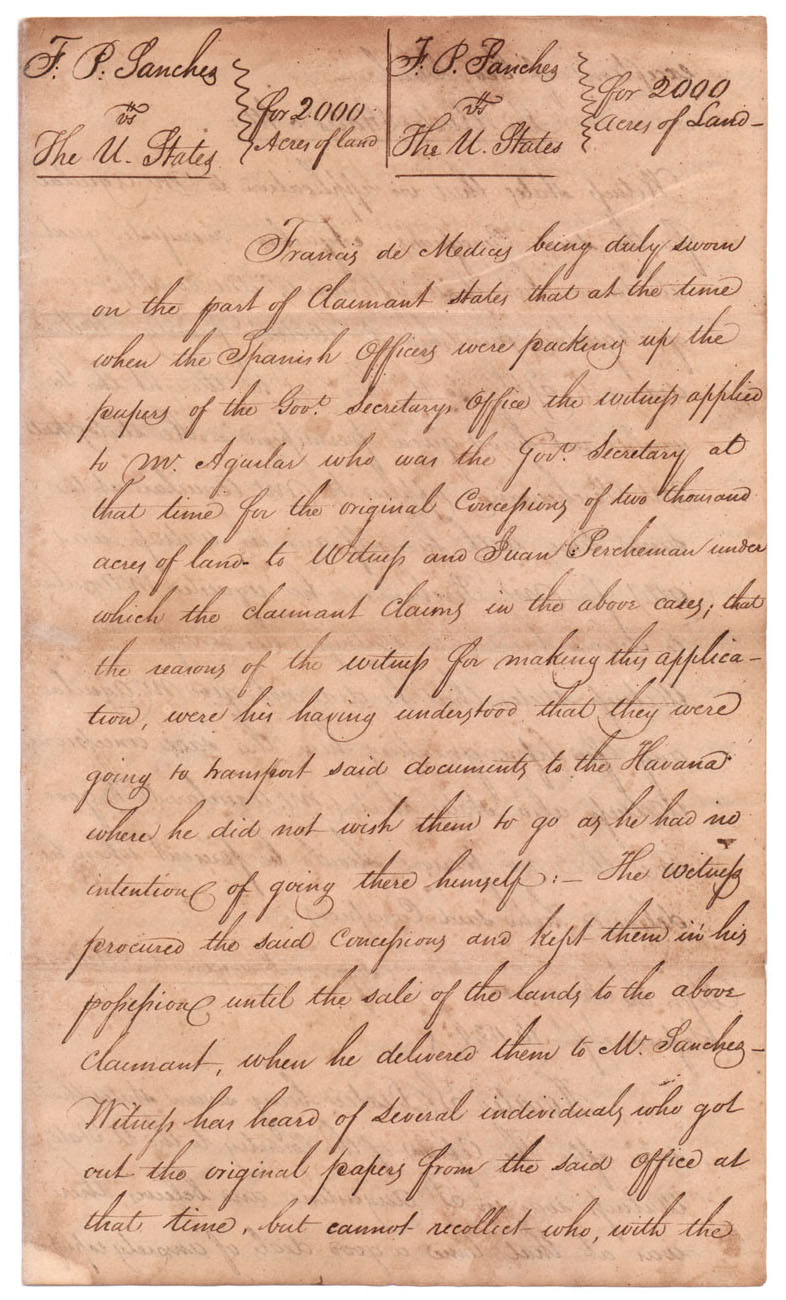 F. P. Sanchez
vs
The U. States
for 2.000
Acres of land
F. P. Sanchez
vs
The U. States
for 2000
Acres of Land –
Francis de Medicis being duly sworn
on the part of Claimant states that at the time
when the Spanish Officers were packing up the
papers of the Govt. Secretarys Office the witness applied
to Mr. Aguilar who was the Govt. Secretary at
that time for the original Concessions of two thousand
acres of land - to Witness and Juan Percheman under
which the claimant Claims in the above cases; that
the reasons of the witness for making this applica –
tion, were his having understood that they were
going to transport said documents to the Havana
where he did not wish them to go as he had no
intention of going there himself : – The witness
procured the said Concessions and kept them in his
possession until the sale of the lands to the above
Claimant, when he delivered them to Mr. Sanchez –
Witness has heard of several individuals who got
out the original papers from the said Office at
that time, but cannot recollect who, with the